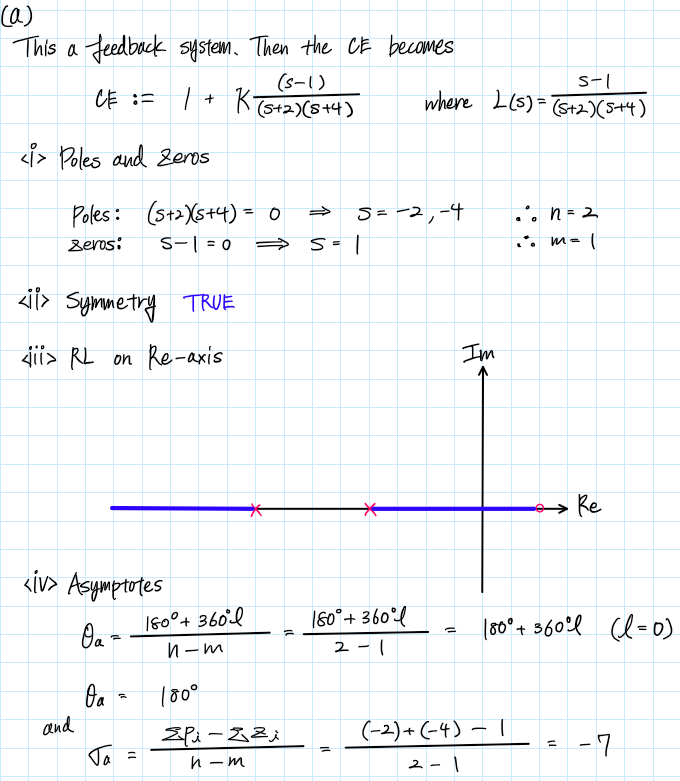 (a)
This a feedback system. Then the CE becomes
CE := 1 + K (s-1)/((s+2)(s+4)) where L(s) = (s-1)/((s+2)(s+4))
<i> Poles and zeros
Poles: (s+2)(s+4) = 0 ⇒ s = -2, -4 ∴ n = 2
zeros: s-1 = 0 ⟹ s = 1 ∴ m = 1
<ii> Symmetry TRUE
<iii> RL on Re-axis
Im
Re
<iv> Asymptotes
θa = (180° + 360°l)/(n-m) = (180° + 360°l)/(2-1) = 180° + 360°l (l=0)
θa = 180°
and
σa = (Σpi - Σzi)/(n-m) = ((-2)+(-4) - 1)/(2-1) = -7